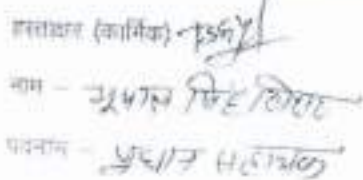 हस्ताक्षर (कार्मिक) -
नाम - भूपाल सिंह
पदनाम - प्रधान सहायक